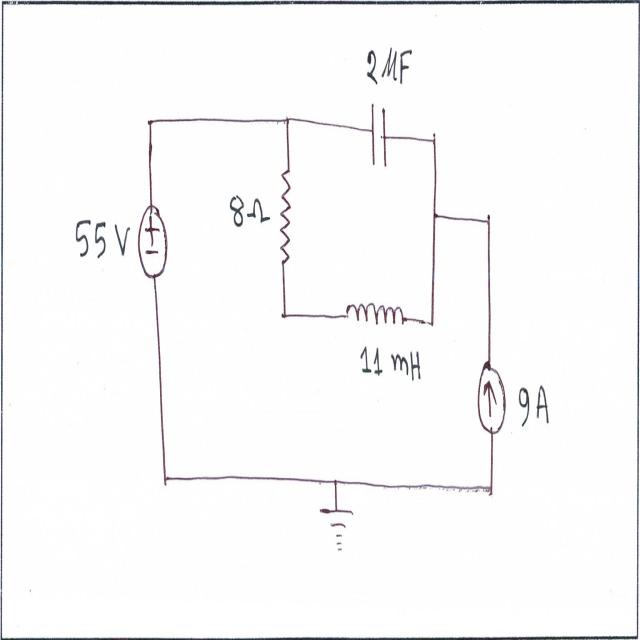 2MF
8Ω
55V
11 mH
9A